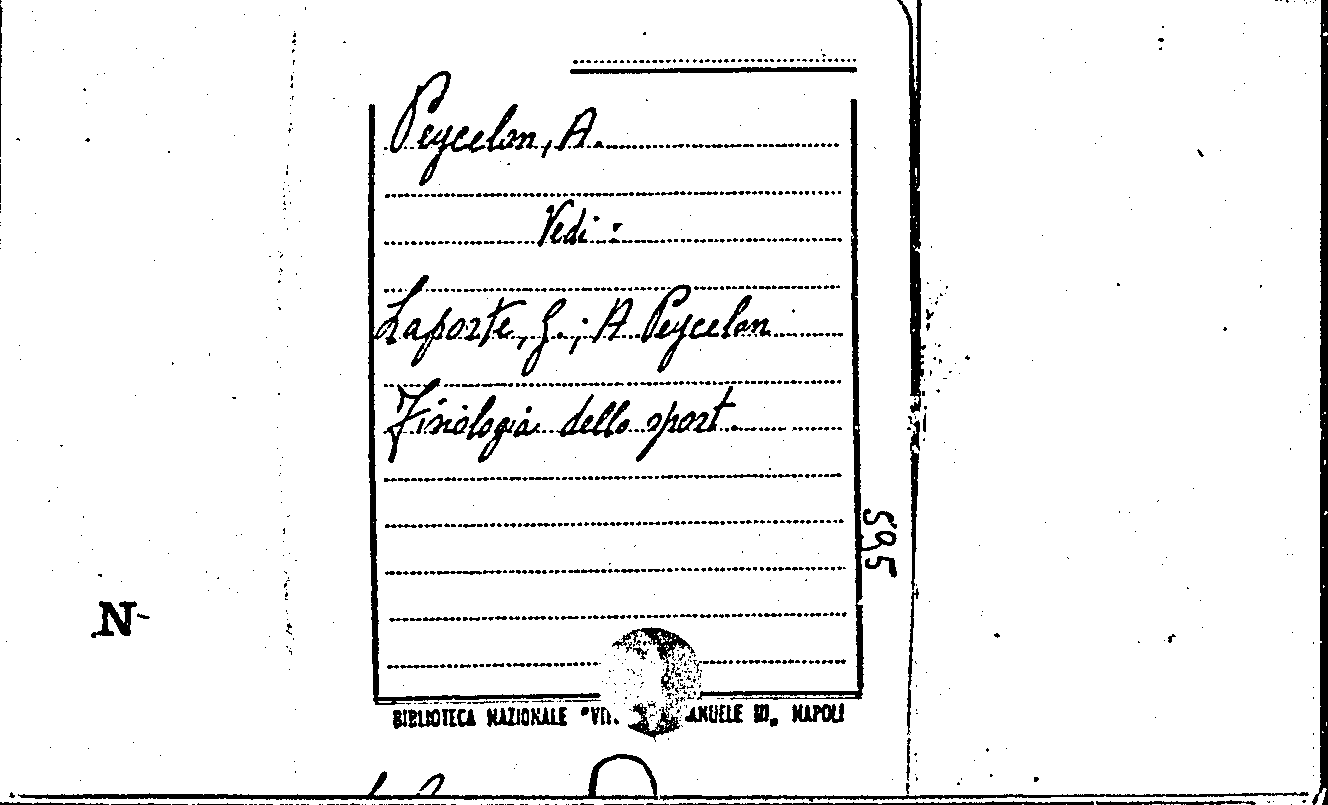 Peycelon, A.
Vedi:
Laporte, G.; A Peycelon
Fisiologia dello sport.
595
N
BIBLIOTECA NAZIONALE NAPOLI